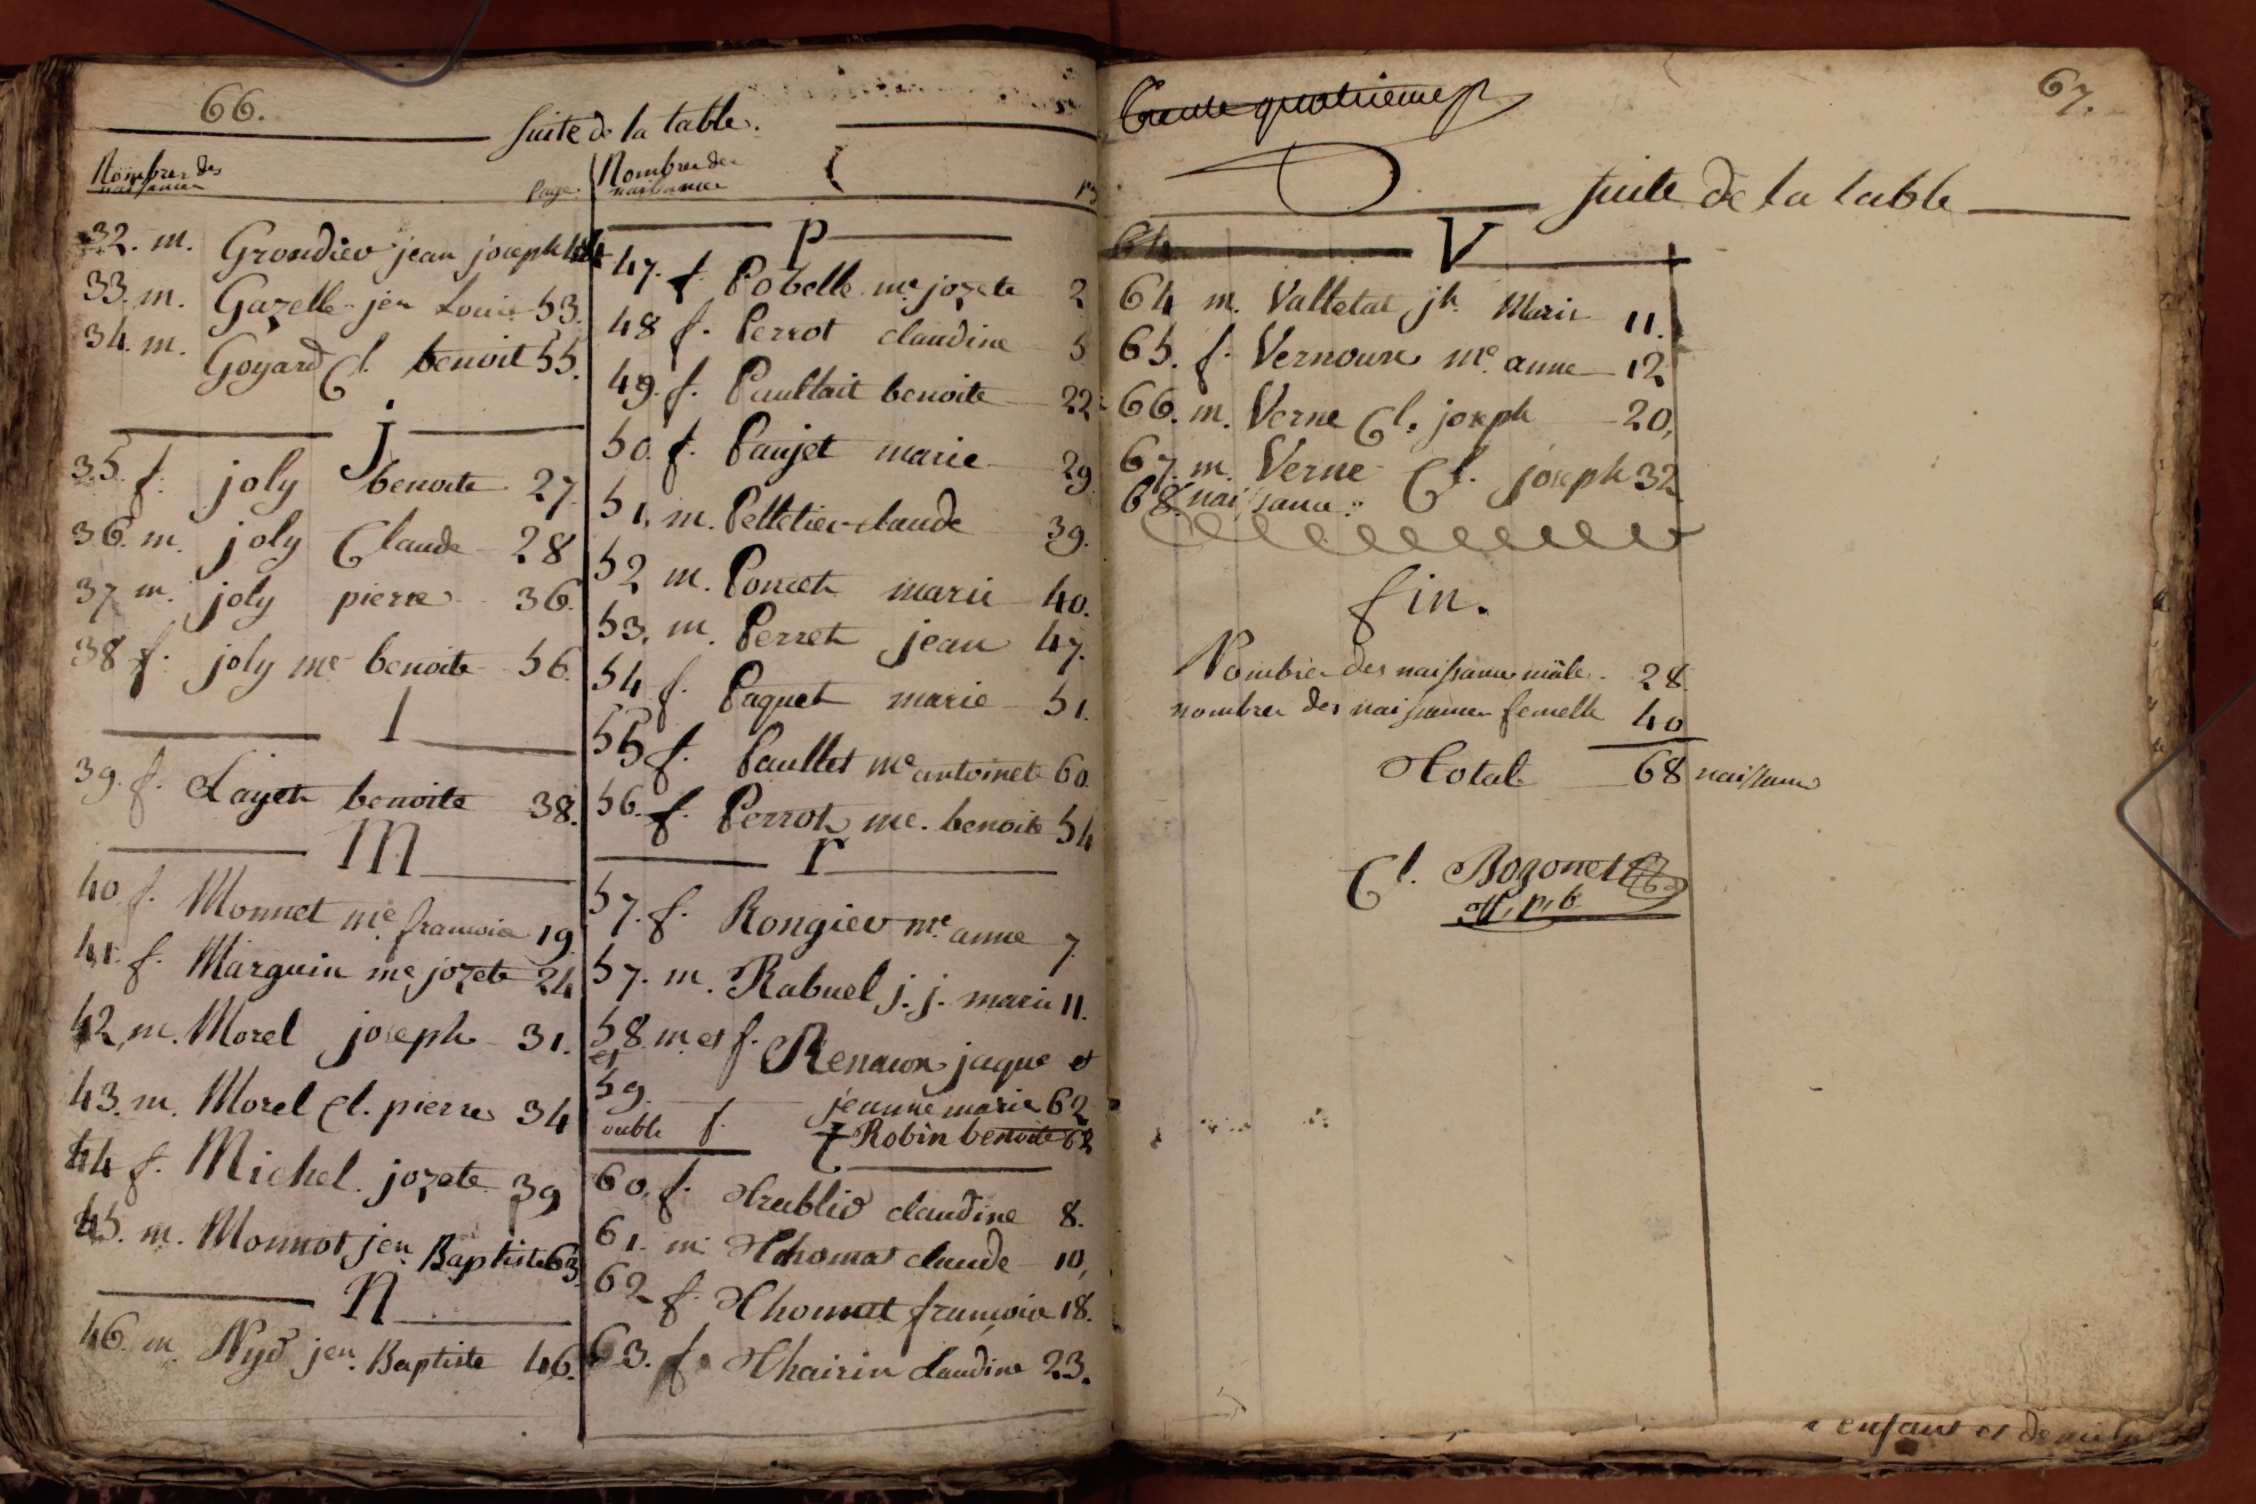 66.
Suite de la table.
Nombres des
naissances
page.
32. m. Grondiev jean joseph
33. m. Gazelle jen Louis 53.
34. m. Goyard Cl. benoit 55.
j
35. f. joly benoite 27.
36. m. joly Claude 28
37 m. joly pierre 36.
38 f. joly me benoite 56.
l
39. f. Layet benoite 38.
M
40 f. Monnet me francoise 19.
41. f. Marguin me jozete 24
42 m. Morel joseph 31.
43. m. Morel Cl. pierre 34
44 f. Michel jozete 39
45. m. Monnot jen Baptiste 63.
N
46. m. Nyd jen. Baptiste 46.
Nombre des
naissances
P
47. f. Pobelle me jozete 2
48 f. Perrot claudine 5
49. f. Paultait benoite 22
50. f. Paujet marie 29.
51. m. Pelletier claude 39.
52 m. Poncet marie 40.
53. m. Perret jean 47.
54 f. Paquet marie 51.
55 f. Paullet me antoinete 60.
56. f. Perrot me. benoite 54
r
57. f. Rongiev me anne 7.
57. m. Rabuel j. j. marie 11.
58 m. et f. Renason jaque et
et
59. jeanne marie 62
ouble f. Robin benoite 62
t
60. f. Trublid claudine 8.
61. m. Thomas claude 10,
62 f. Thomat francoise 18.
63. f. Thairin Claudine 23.
67.
trente quatrieme
Suite de la table
V
64 m. Valletat jh. Marie 11.
65. f. Vernoux me. anne 12
66. m. Verne Cl. joseph 20,
67. m. Verne Cl. joseph 32
68. naissance.
fin.
Nombre des naissance mâle. 28.
nombres des naissances femelle 40
Total 68 naissance
Cl. Bozonet
enfant et de